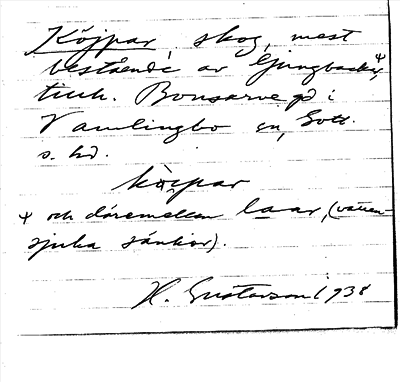 Köjpar, skog, mest
bestående av ljungbackar,ψ
tillh. Bonsarve gd i
Vamlingbo sn, Gotl.
s. hd.
köjpar
ψ och däremellan laar, (vatten-
sjuka sänkor).
H. Gustavson 1938